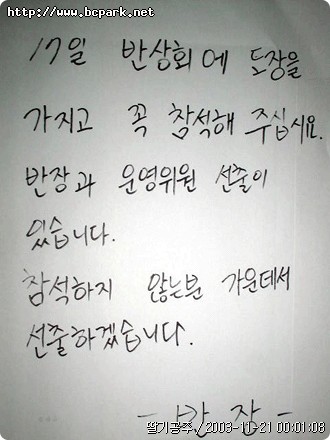 http://www.bcpark.net
17일 반상회에 도장을
가지고 꼭 참석해 주십시요.
반장과 운영위원 선출이
있습니다.
참석하지 않는분 가운데서
선출하겠습니다.
- 반 장 -
딸기공주 / 2003-11-21 00:01:08